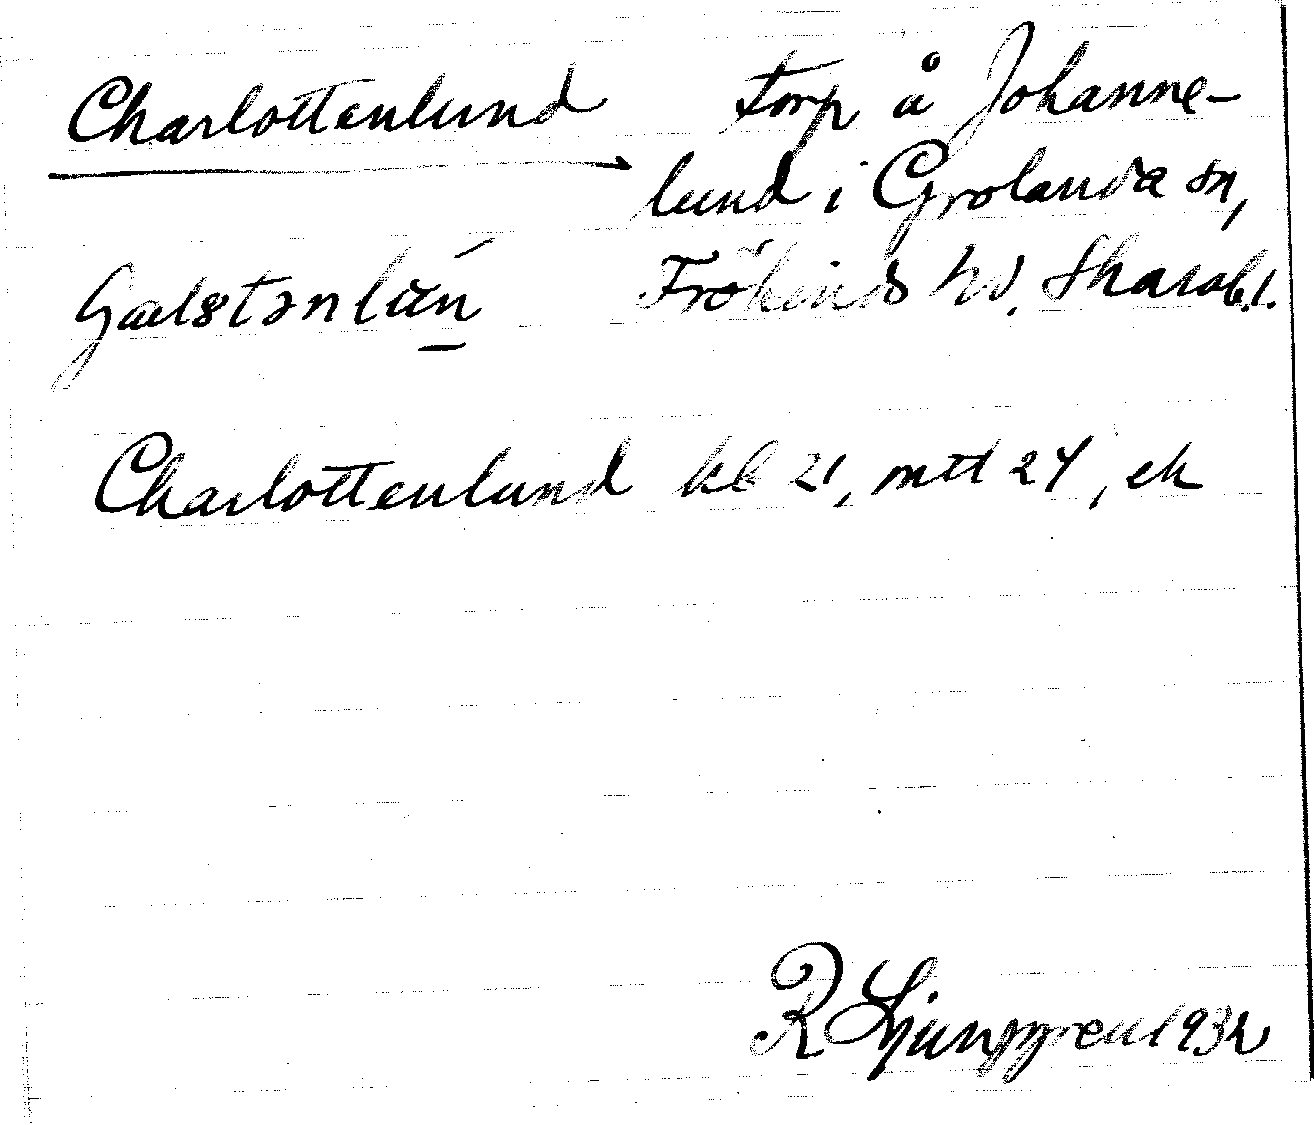 Charlottenlund torp å Johanne-
lund i Grolanda sn,
Frökinds hd. Skarab.l.
Charlottenlund kb 21, mtl 24, ek
R Ljunggren 1932